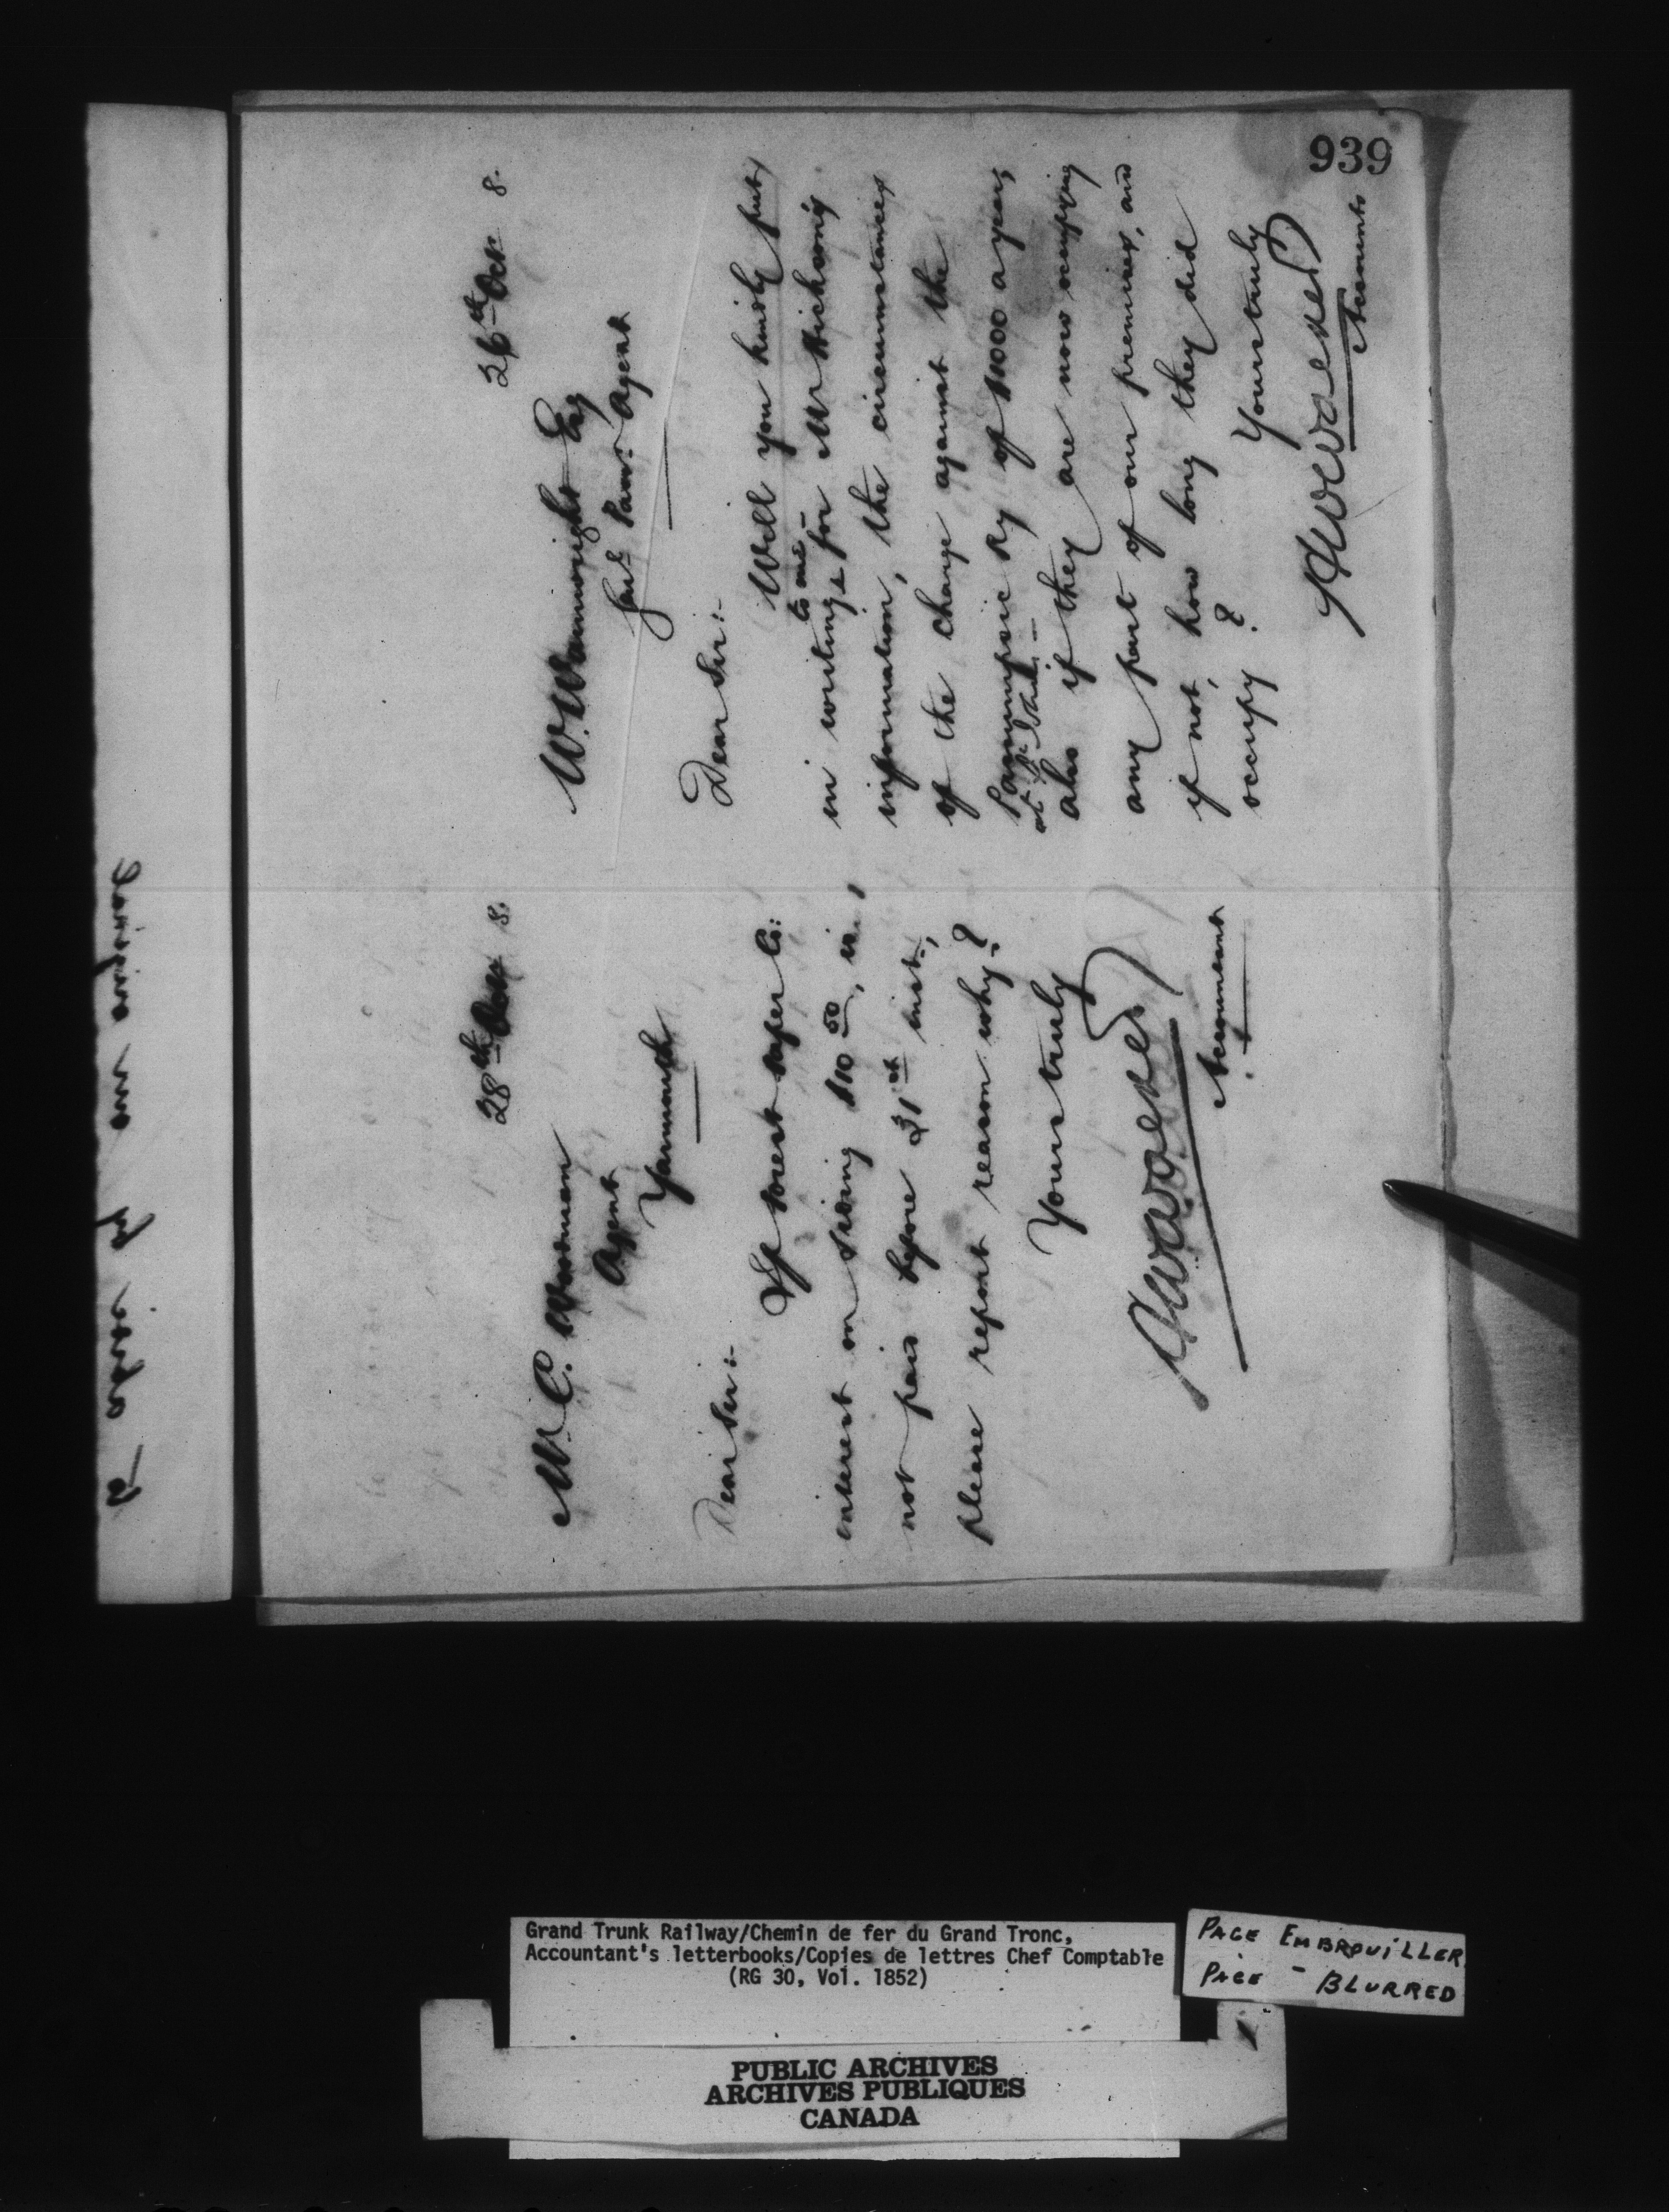 939
28th Octr 8.
M. C. Woodman
Agent
Yarmouth
Dear Sir:-
If Forest Paper Co:
interest on siding $10 00, is
not paid before 31st inst.,
please report reason why?
Yours truly
Accountant
26th Octr 8.
W. Wainwright Esq
Genl Passr Agent
Dear Sir:-
Will you kindly put
to me -
in writing, for Mr Hickson's
information, the circumstances
of the charge against the
Passumpsic Ry of $1000 a year,
also if they are now occupying
any part of our premises, and
if not, how long they did
occupy?
Yours truly
Accountant
by an original
Grand Trunk Railway/Chemin de fer du Grand Tronc,
Accountant's letterbooks/Copies de lettres Chef Comptable
(RG 30, Vol. 1852)
PAGE EMBROUILLER
PAGE - BLURRED
PUBLIC ARCHIVES
ARCHIVES PUBLIQUES
CANADA